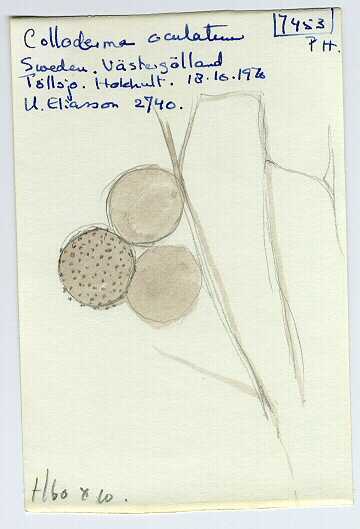 Colloderma oculatum [7453]
P H.
Sweden. Västergötland
Töllsjö. Hokhult. 18.10.1976
U. Eliasson 2740.
H/60 x 10.